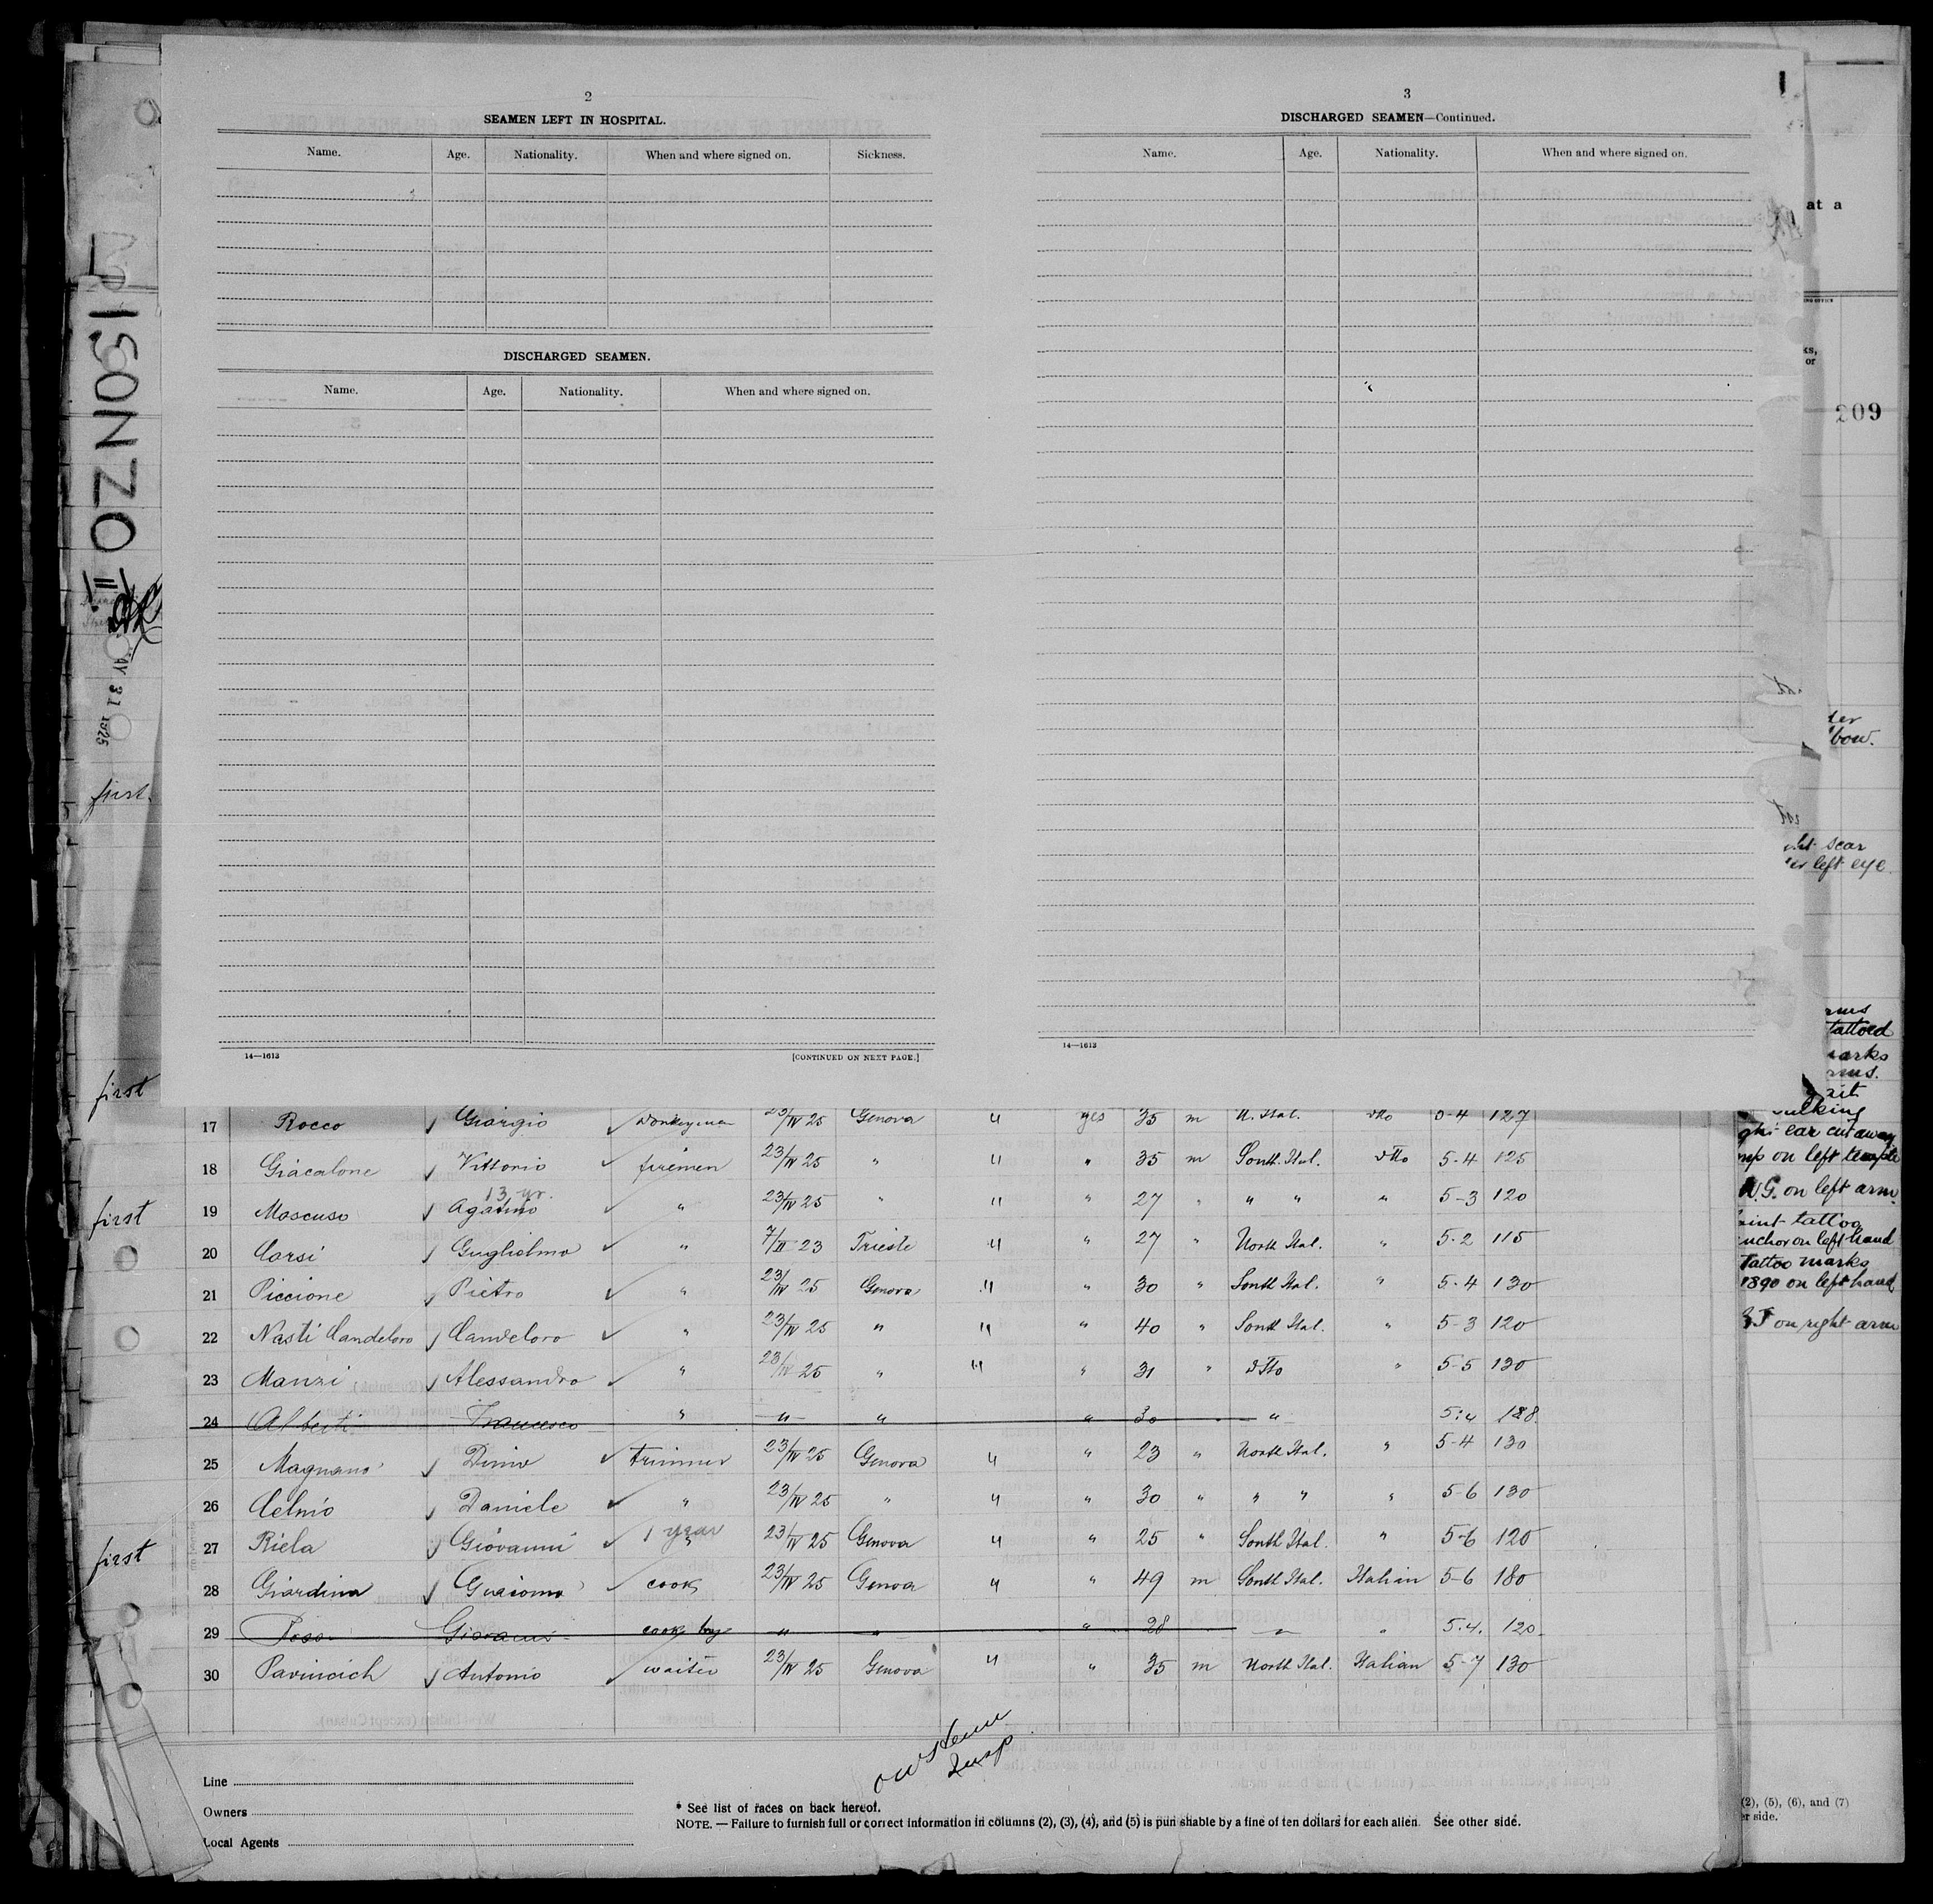 2
SEAMEN LEFT IN HOSPITAL.
Name. Age. Nationality. When and where signed on. Sickness.
DISCHARGED SEAMEN.
Name. Age. Nationality. When and where signed on.
14—1613 [CONTINUED ON NEXT PAGE.]
3
DISCHARGED SEAMEN—Continued.
Name. Age. Nationality. When and where signed on.
14—1613
at a
ks,
or
209
bow.
scar
left eye.
rms
tattoed
marks
rms.
ISONZO II.
AY 31 1925
first.
first
first
first
17 Rocco Giorgio Donkeyman 23/IV 25 Genova " yes 35 m N. Ital. dtto 5-4 127
18 Giacalone Vittorio firemen 23/IV 25 " " " 35 m South Ital. dtto 5-4 125
13 yr.
19 Moscuso Agatino " 23/IV 25 " " " 27 " " " " 5-3 120
20 Corsi Guglielmo " 7/II 23 Trieste " " 27 " North Ital. " 5-2 115
21 Piccione Pietro " 23/IV 25 Genova " " 30 " South Ital. " 5-4 130
22 Nasti Candeloro Candeloro " 23/IV 25 " " " 40 " South Ital. " 5-3 120
23 Manzi Alessandro " 23/IV 25 " " " 31 " dtto " 5-5 130
24 Alberti Francesco " " " " 30 " 5:4 128
25 Magnano Dino trimmer 23/IV 25 Genova " " 23 " North Ital. " 5-4 130
26 Celmo Daniele " 23/IV 25 " " " 30 " " " " 5-6 130
27 Riela Giovanni 1 year " 23/IV 25 Genova " " 25 " South Ital. " 5-6 120
28 Giardina Giacomo cook 23/IV 25 Genova " " 49 m South Ital. Italian 5-6 180
29 Poso Giovanni cook boy " " " 28 " " 5.4. 120.
30 Pavincich Antonio waiter 23/IV 25 Genova " " 35 m North Ital. Italian 5-7 130
ear cut away
on left temple
W.G. on left arm
tattoo
anchor on left hand
Tattoo marks
1890 on left hand
on right arm
Insp
Line
Owners
Local Agents
* See list of races on back hereof.
NOTE. — Failure to furnish full or correct information in columns (2), (3), (4), and (5) is punishable by a fine of ten dollars for each alien. See other side.
(2), (5), (6), and (7)
er side.